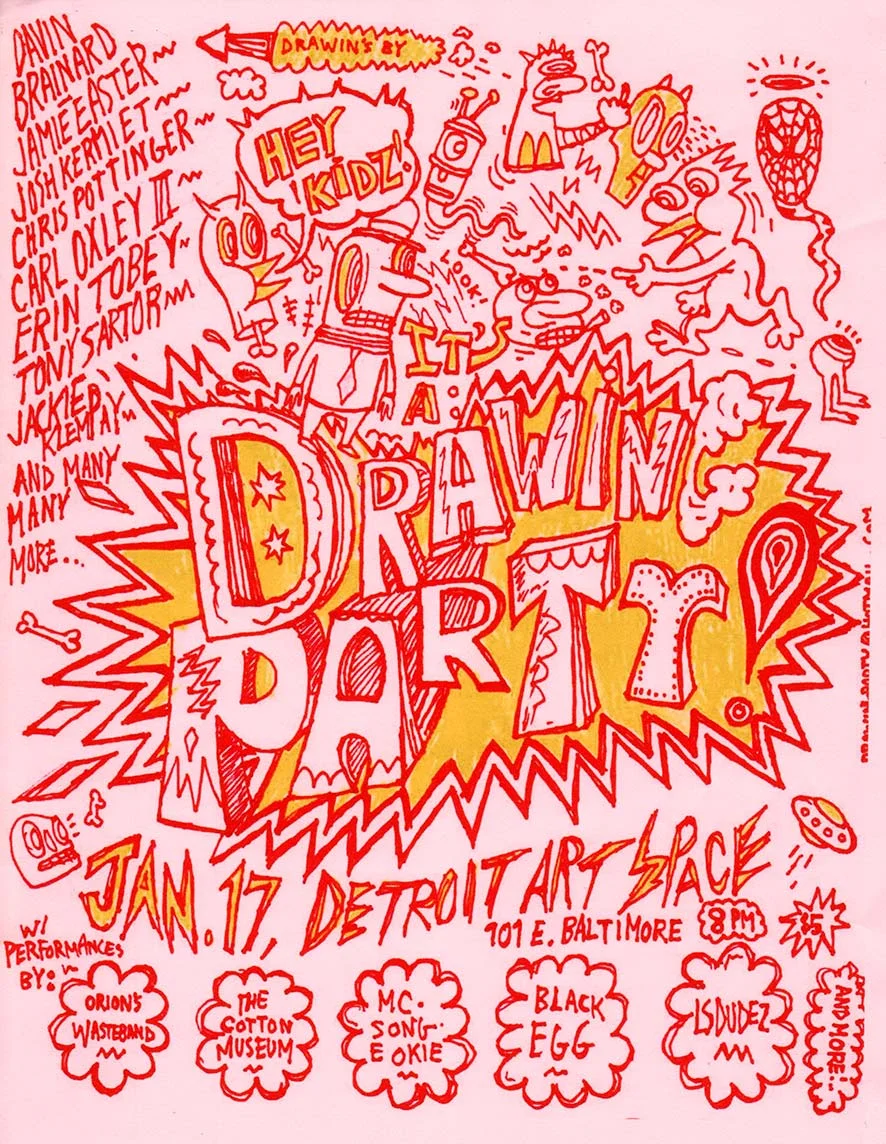 DAVIN
BRAINARD
JAMIE EASTER
JOSH KERMIET
CHRIS POTTINGER
CARL OXLEY III
ERIN TOBEY
TONY SARTOR
JACKIE P.
KLEMPAY
AND MANY
MANY
MORE...
DRAWIN'S BY
HEY
KIDZ!
LOOK!
IT'S
A:
DRAWING
PARTY!
JAN. 17, DETROIT ART SPACE
101 E. BALTIMORE
8 PM
$5
W/
PERFORMANCES
BY:
ORION'S
WASTEBAND
THE
COTTON
MUSEUM
M.C.
SONG-
E OKIE
BLACK
EGG
LSDUDEZ
AND MORE!..